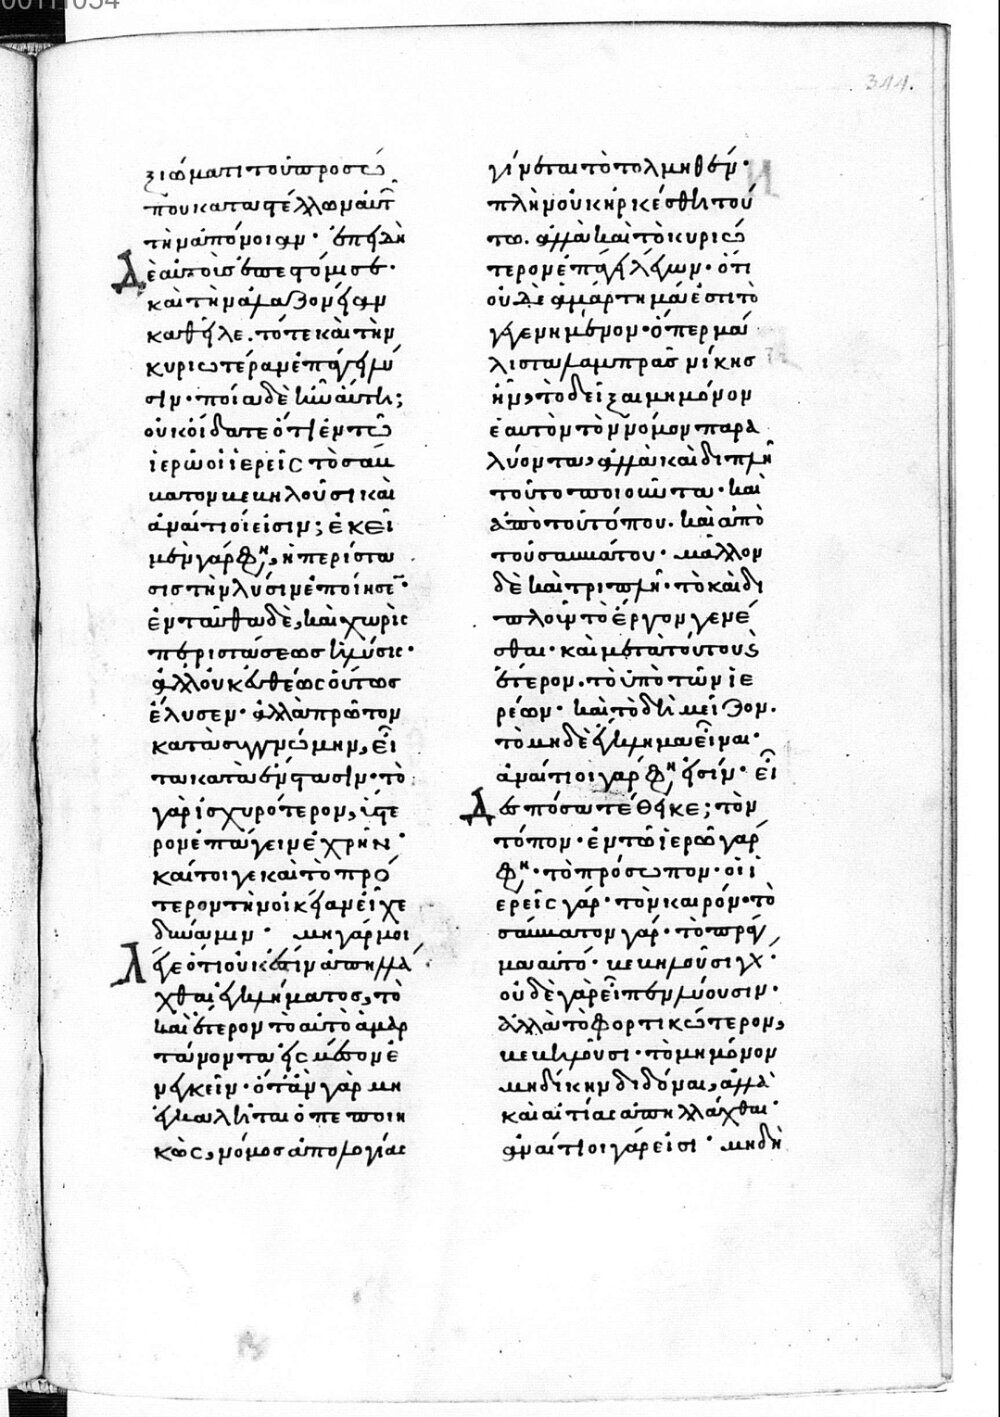 00111054
344.
ξιώματι τοῦ προσώ
που καταψέλλων αὐτ
τὴν ἀπόνοιαν· ἐπειδὴ
δὲ αὐτοὺς ἐπεστόμισε·
καὶ τὴν ἀλαζονείαν
καθεῖλε. τότε καὶ τὴν
κυριωτέραν ἐπάγει λύ
σιν· ποία δὲ ἦν αὕτη;
οὐκ οἴδατε ὅτι ἐν τῶ
ἱερῶ οἱ ἱερεῖς τὸ σάβ
βατον βεβηλοῦσι καὶ
ἀναίτιοί εἰσιν; ἐκεῖ
μὲν γὰρ φη, ἡ περίστα
σις τὴν λύσιν ἐποίησε·
ἐνταῦθα δὲ, καὶ χωρὶς
περιστάσεως ἡ λύσις·
ἀλλ' οὐκ εὐθέως οὕτως
ἔλυσεν· ἀλλὰ πρῶτον
κατὰ συγγνώμην, εἶ
τα κατὰ ἔνστασιν· τὸ
γὰρ ἰσχυρότερον, ὕστε
ρον ἐπάγειν ἐχρῆν·
καίτοιγε καὶ τὸ πρό
τερον τὴν οἰκείαν εἶχε
δύναμιν· μὴ γάρ μοι
λέγε ὅτι οὐκ ἔστιν ἀπηλλά
χθαι ἐγκλήματος, τὸ
καὶ ἕτερον τὸ αὐτὸ ἁμαρ
τάνοντα εἰς μέσον ἐ
νεγκεῖν· ὅταν γὰρ μὴ
ἐγκαλῆται ὁ πεποιη
κὼς, νόμος ἀπολογίας
γίνεται τὸ τολμηθέν·
πλὴν οὐκ ἠρκέσθη του
τω. ἀλλὰ καὶ τὸ κυριώ
τερον ἐπάγει λέγων· ὅτι
οὐδὲ ἁμάρτημά ἐστι τὸ
γεγενημένον· ὅπερ μά
λιστα λαμπρᾶς νίκης
ἦν, τὸ δεῖξαι μὴ μόνον
ἑαυτὸν τὸν νόμον παρα
λύοντα, ἀλλὰ καὶ διπλῆ
τοῦτο ποιοῦντα· καὶ
ἀπὸ τοῦ τόπου. καὶ ἀπὸ
τοῦ σαββάτου· μᾶλλον
δὲ καὶ τριπλῆ· τὸ καὶ δι
πλοῦν τὸ ἔργον γενέ
σθαι· καὶ μετὰ τούτου ἕ
τερον. τὸ ὑπὸ τῶν ἱε
ρέων· καὶ τὸ δὴ μεῖζον.
τὸ μηδὲ ἔγκλημα εἶναι·
ἀναίτιοι γάρ φη εἰσίν· εἶ
δες πόσα τέθεικε; τὸν
τόπον· ἐν τῶ ἱερῶ γάρ
φη· τὸ πρόσωπον· οἱ ἱ
ερεῖς γάρ· τὸν καιρόν· τὸ
σάββατον γάρ· τὸ πρᾶγ
μα αὐτό· βεβηλοῦσι γάρ·
οὐδὲ γὰρ εἶπεν λύουσιν·
ἀλλὰ τὸ φορτικώτερον,
βεβηλοῦσι· τὸ μὴ μόνον
μὴ δίκην διδόναι, ἀλλὰ
καὶ αἰτίας ἀπηλλάχθαι·
ἀναίτιοι γάρ εἰσι· μὴ δὴ